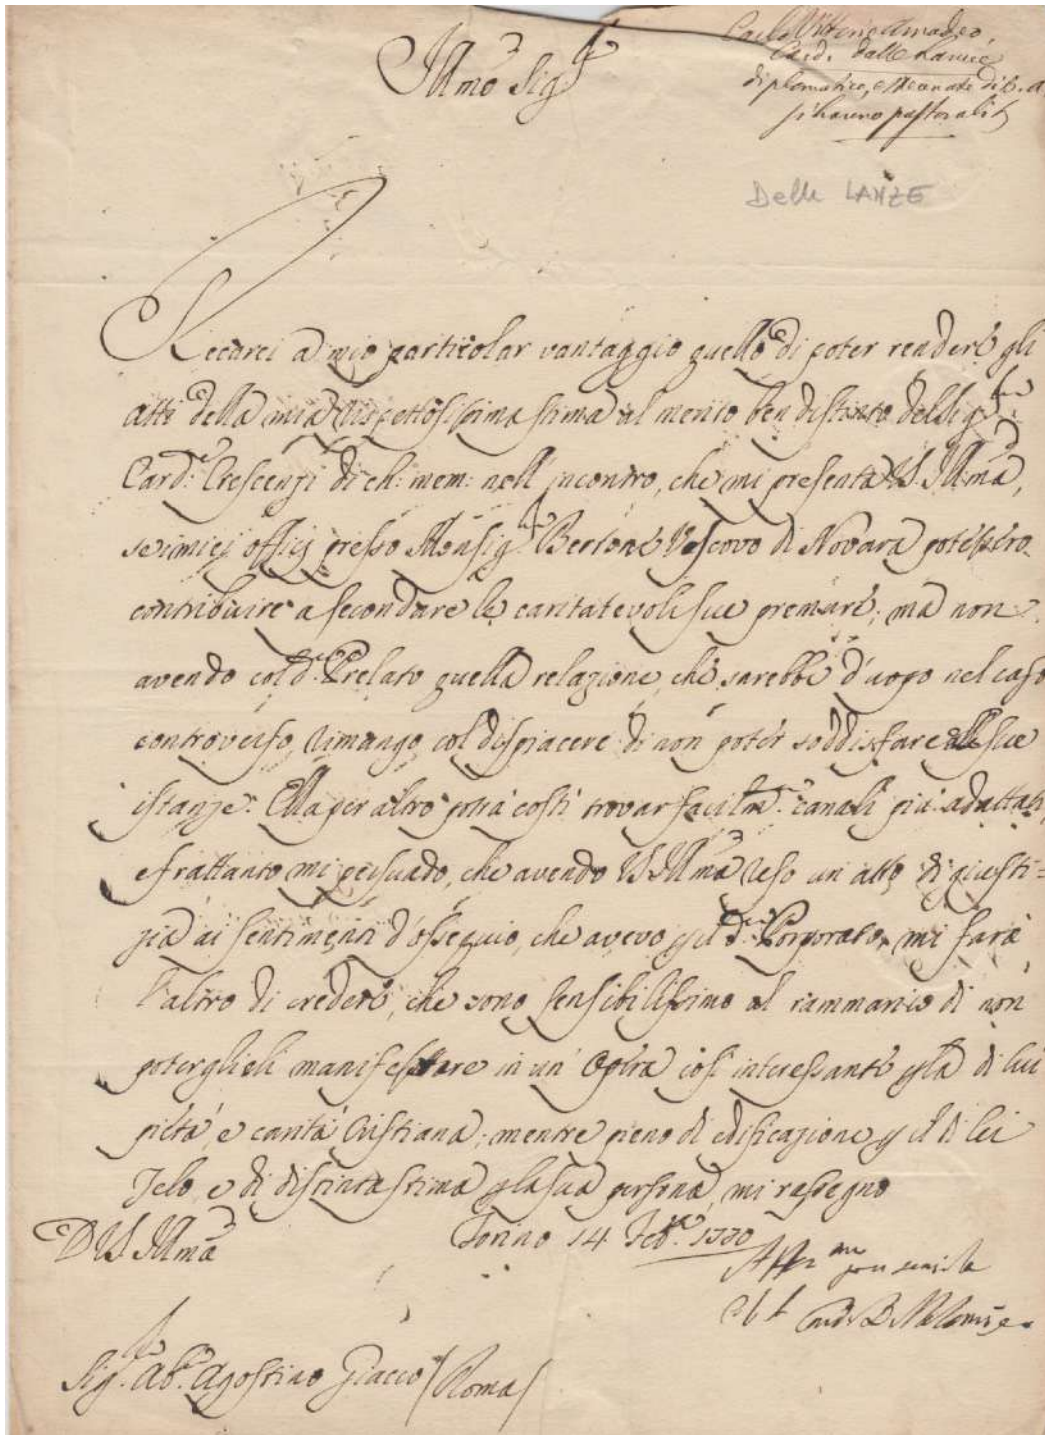 Illmo Sigr
Carlo Vittorio Amadeo,
Card. delle Lanze
diplomatico,
pastorali
Delle LANZE
Recarei a mio particolar vantaggio quello di poter rendere gli
atti della mia rispettosissima stima al merito ben distinto del Sigr
Card: Crescenzi di ch: mem: nell'incontro, che mi presenta V.S. Illma,
se i miei officj presso Monsigr Bertone Vescovo di Novara potessero
contribuire a secondare le caritatevoli sue premure; ma non
avendo col do Prelato quella relazione, che sarebbe d'uopo nel caso
controverso, rimango col dispiacere di non poter soddisfare alle sue
istanze. Ella per altro potrà costì trovar facilmte canali più adattati,
e frattanto mi persuado, che avendo V.S. Illma reso un atto di giusti=
zia ai sentimenti d'ossequio, che avevo pel do Porporato, mi farà
l'altro di credere, che sono sensibilissimo al rammarico di non
poterglieli manifestare in un' Opera così interessante pla di lui
pietà, e carità Cristiana; mentre pieno di edificazione pil di lei
Zelo, e di distinta stima pla sua persona, mi rassegno
D V.S. Illma
Torino 14 Febro 1770
Affmo per servirla
Card.
Sigr Abe Agostino Giacco (Roma)